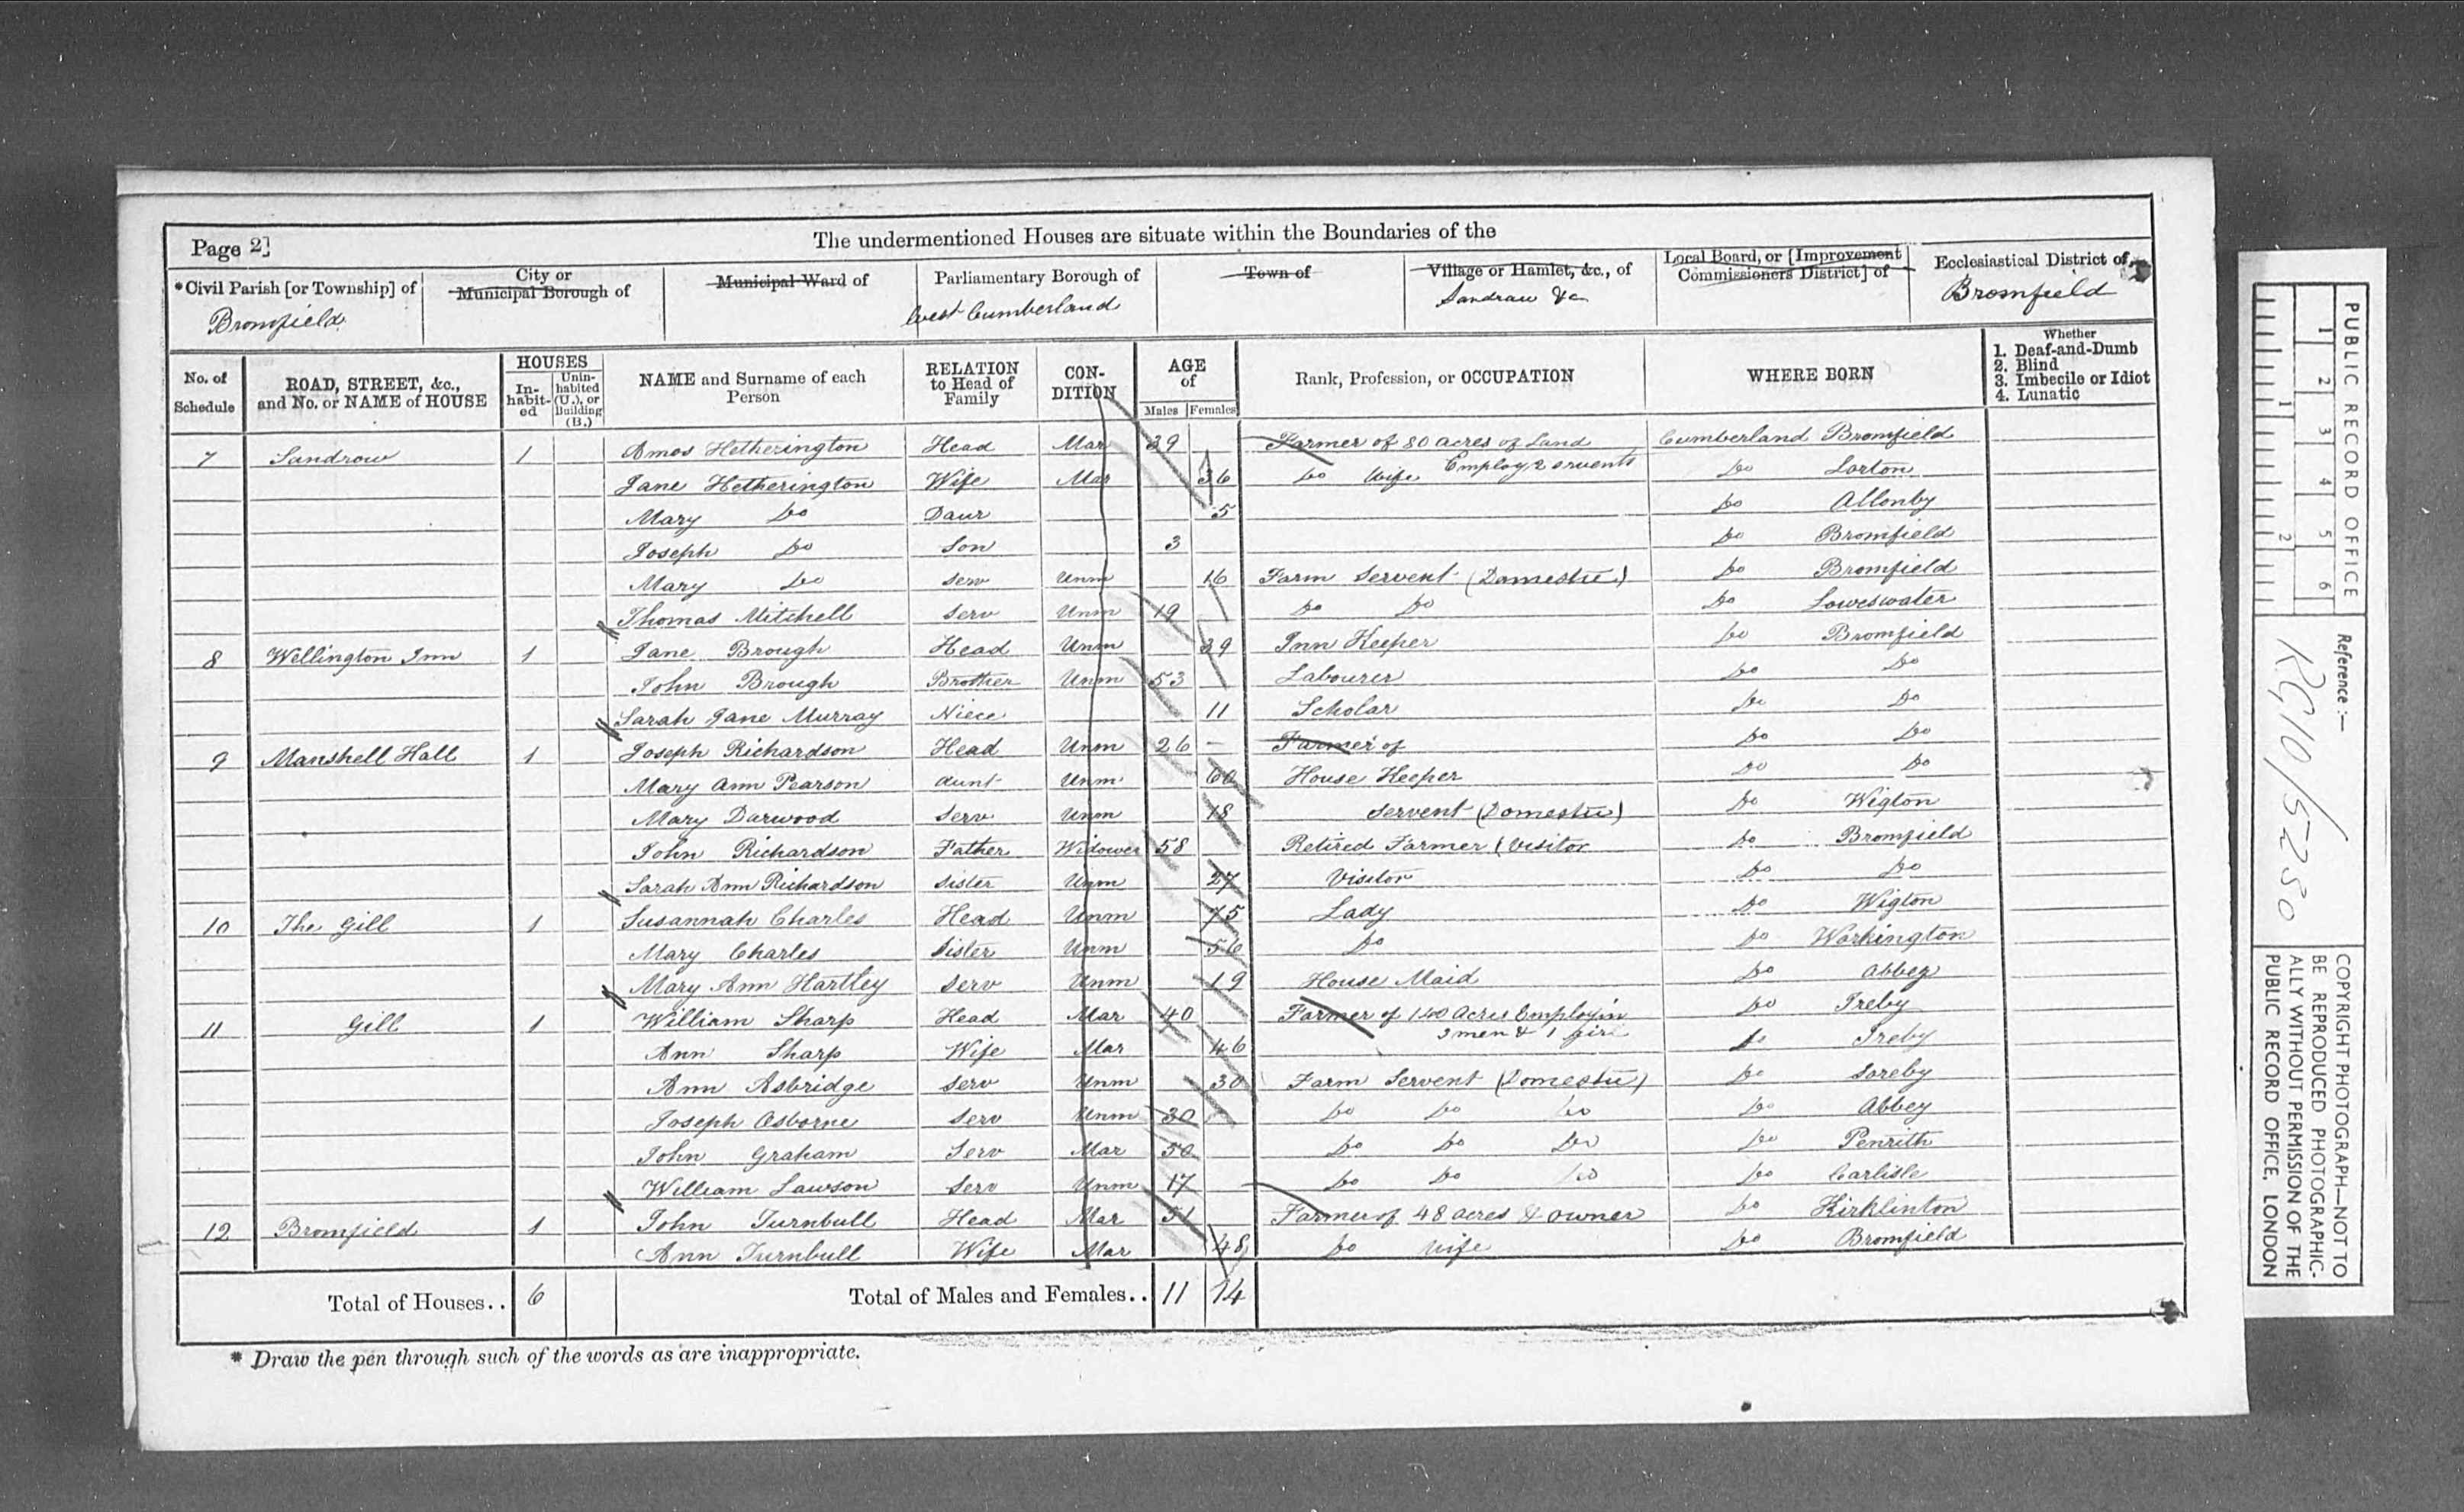 Page 2]
The undermentioned Houses are situate within the Boundaries of the
*Civil Parish [or Township] of Bromfield
City or Municipal Borough of
Municipal Ward of
Parliamentary Borough of West Cumberland
Town of
Village or Hamlet, &c., of Sandraw &c
Local Board, or [Improvement Commissioners District] of
Ecclesiastical District of Bromfield
No. of Schedule
ROAD, STREET, &c., and No. or NAME of HOUSE
HOUSES
In-habit-ed
Unin-habited (U.), or Building (B.)
NAME and Surname of each Person
RELATION to Head of Family
CON-DITION
AGE of
Males Females
Rank, Profession, or OCCUPATION
WHERE BORN
Whether
1. Deaf-and-Dumb
2. Blind
3. Imbecile or Idiot
4. Lunatic
7 Sandrow 1 Amos Hetherington Head Mar 39 Farmer of 80 acres of Land Cumberland Bromfield
Employ 2 servents
Jane Hetherington Wife Mar 36 Do Wife Do Lorton
Mary Do Daur 5 Do Allonby
Joseph Do Son 3 Do Bromfield
Mary Do Serv Unm 16 Farm Servent (Domestic) Do Bromfield
Thomas Mitchell Serv Unm 19 Do Do Do Loweswater
8 Wellington Inn 1 Jane Brough Head Unm 39 Inn Keeper Do Bromfield
John Brough Brother Unm 53 Labourer Do Do
Sarah Jane Murray Niece 11 Scholar Do Do
9 Manshell Hall 1 Joseph Richardson Head Unm 26 – Farmer of Do Do
Mary Ann Pearson Aunt Unm 60 House Keeper Do Do
Mary Darwood Serv Unm 18 Servent (Domestic) Do Wigton
John Richardson Father Widower 58 Retired Farmer (Visitor Do Bromfield
Sarah Ann Richardson Sister Unm 27 Visitor Do Do
10 The Gill 1 Susannah Charles Head Unm 75 Lady Do Wigton
Mary Charles Sister Unm 56 Do Do Workington
Mary Ann Hartley Serv Unm 19 House Maid Do Abbey
11 Gill 1 William Sharp Head Mar 40 Farmer of 140 Acres Employin Do Ireby
3 men & 1 girl
Ann Sharp Wife Mar 46 Do Ireby
Ann Asbridge Serv Unm 30 Farm Servent (Domestic) Do
Joseph Osborne Serv Unm 30 Do Do Do Do Abbey
John Graham Serv Mar 50 Do Do Do Do Penrith
William Lawson Serv Unm 17 Do Do Do Do Carlisle
12 Bromfield 1 John Turnbull Head Mar 51 Farmer of 48 acres & owner Do Kirklinton
Ann Turnbull Wife Mar 48 Do Wife Do Bromfield
Total of Houses.. 6 Total of Males and Females.. 11 14
* Draw the pen through such of the words as are inappropriate.
PUBLIC RECORD OFFICE
1 2 3 4 5 6
1 2
Reference :—
RG10/5230
COPYRIGHT PHOTOGRAPH—NOT TO
BE REPRODUCED PHOTOGRAPHIC-
ALLY WITHOUT PERMISSION OF THE
PUBLIC RECORD OFFICE, LONDON